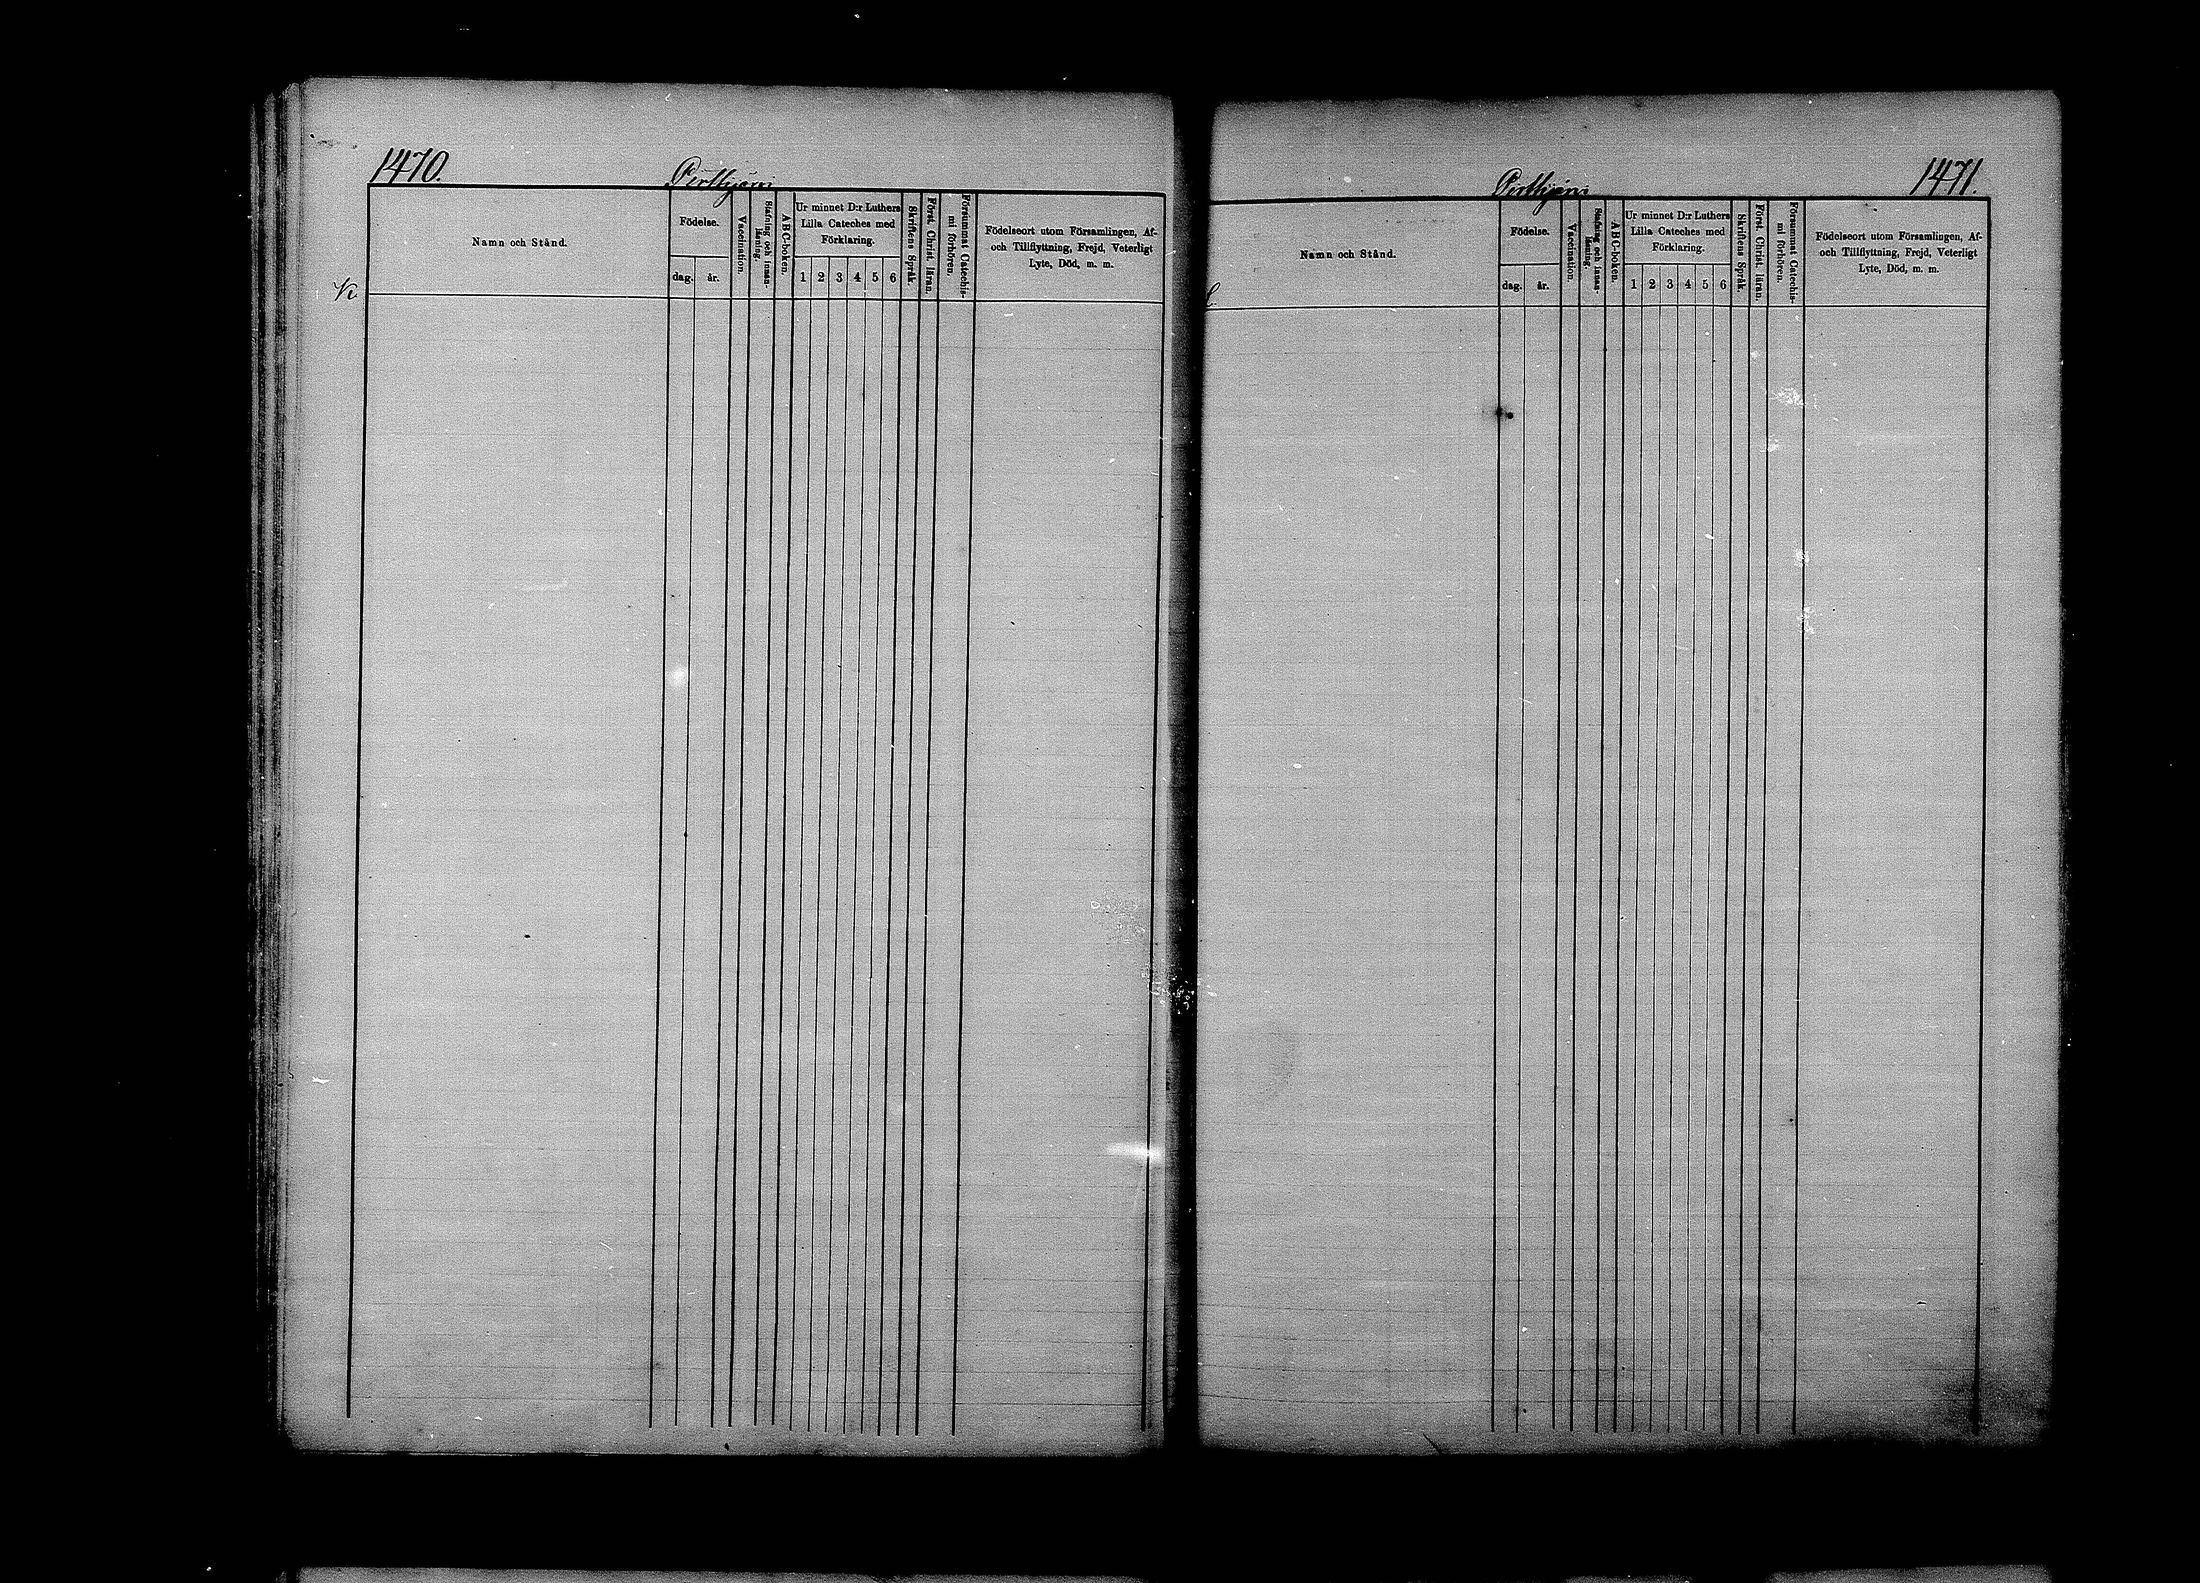 1470.
Pertjärvi
Namn och Stånd.
Födelse.
dag.
år.
Vaccination.
Stafning och innan-
läsning.
ABC-boken.
Ur minnet D:r Luthers
Lilla Cateches med
Förklaring.
1 2 3 4 5 6
Skriftens Språk.
Först. Christ. läran.
Försummat Catechis-
mi förhören.
Födelseort utom Församlingen, Af-
och Tillflyttning, Frejd, Veterligt
Lyte, Död, m. m.
K.
1471.
Namn och Stånd.
Födelse.
dag.
år.
Vaccination.
Stafning och innan-
läsning.
ABC-boken.
Ur minnet D:r Luthers
Lilla Cateches med
Förklaring.
1 2 3 4 5 6
Skriftens Språk.
Först. Christ. läran.
Försummat Catechis-
mi förhören.
Födelseort utom Församlingen, Af-
och Tillflyttning, Frejd, Veterligt
Lyte, Död, m. m.
L.